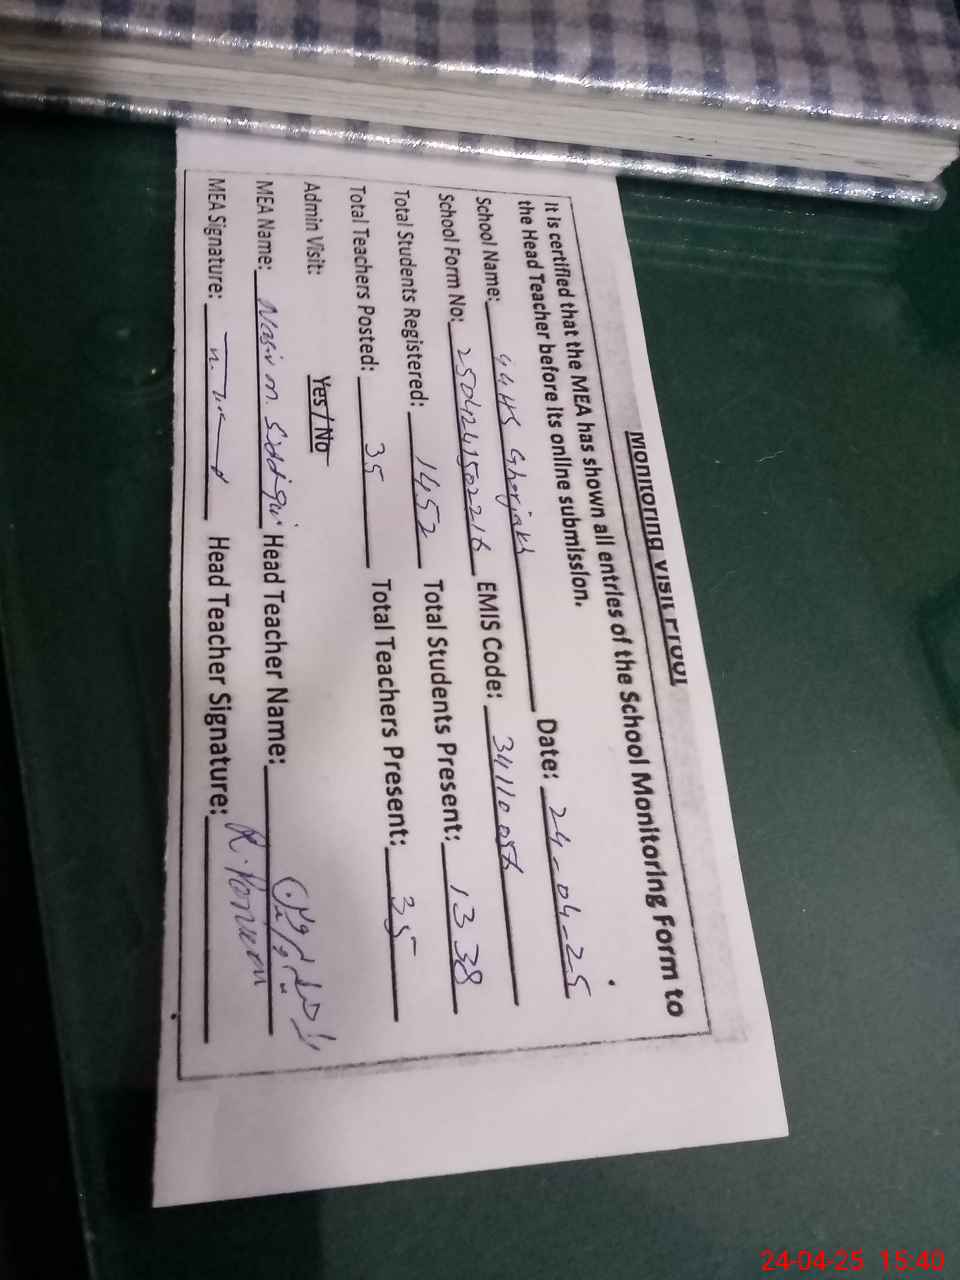 Monitoring Visit Proof
It is certified that the MEA has shown all entries of the School Monitoring Form to
the Head Teacher before its online submission.
School Name: GGHS Gharjakh Date: 24-04-25
School Form No: EMIS Code:
Total Students Registered: 1452 Total Students Present: 1338
Total Teachers Posted: 35 Total Teachers Present: 35
Admin Visit: Yes / No
MEA Name: Nasir m. Siddiqui Head Teacher Name:
MEA Signature: Head Teacher Signature:
24-04-25 15:40